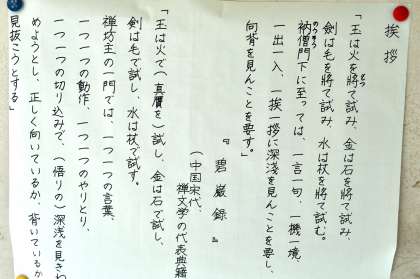 挨拶
「玉は火を將て試み、金は石を將て試み、
劍は毛を將て試み、水は杖を將て試む。
納僧門下に至っては、一言一句、一機一境、
のうそう
一出一入、一挨一拶に深淺を見んことを要し、
向背を見んことを要す。」
『碧巌録』
(中国宋代、
禅文学の代表典籍
「玉は火で(真贋を)試し、金は石で試し、
剣は毛で試し、水は杖で試す。
禅坊主の一門では、一つ一つの言葉、
一つ一つの動作、一つ一つのやりとり、
一つ一つの切り込みで、(悟りの)深浅を見きわ
めようとし、正しく向いているか、背いているか
見抜こうとする」